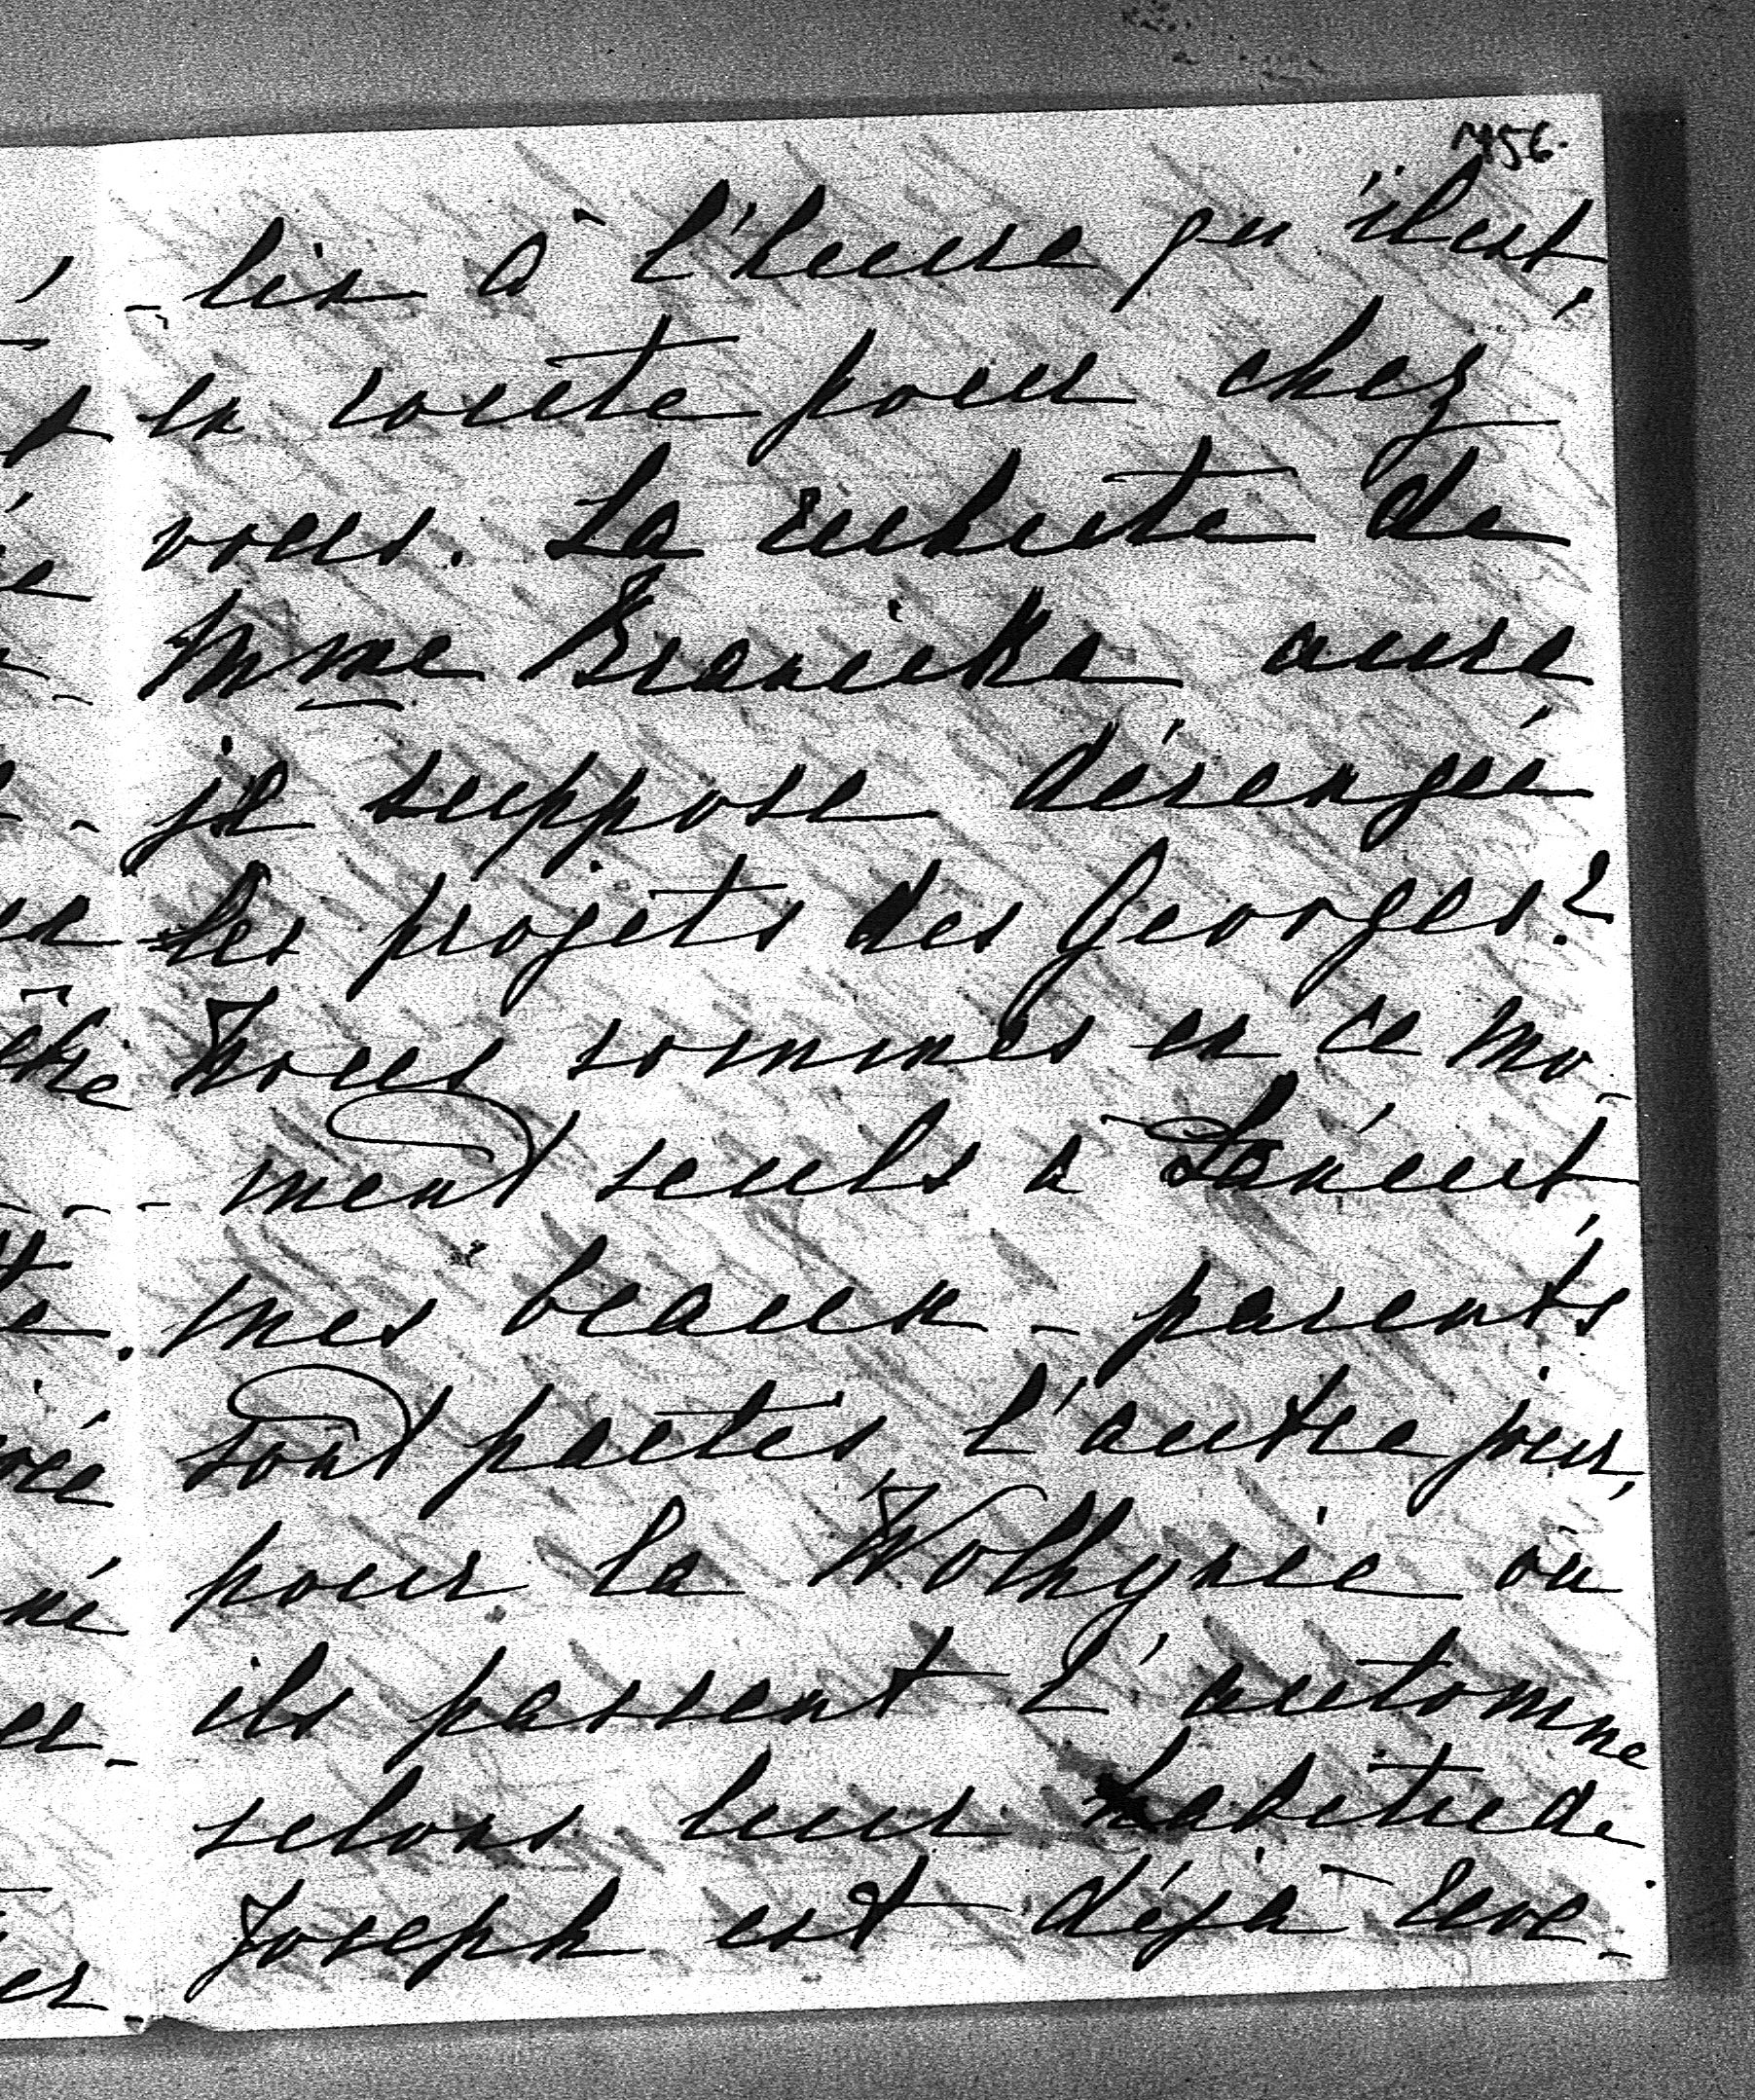 456.
- lin à l'heure qu'il est,
en route pour chez
vous. La rechute de
Mme Branicka aura
je suppose dérangée
les projets des Georges?
Nous sommes en ce mo-
- ment seuls à Lancut,
mes beaux - parents
sont partis l'autre jour,
pour la Wolhynie où
ils passent l'automne
selons leur habitude.
Joseph est déjà reve-